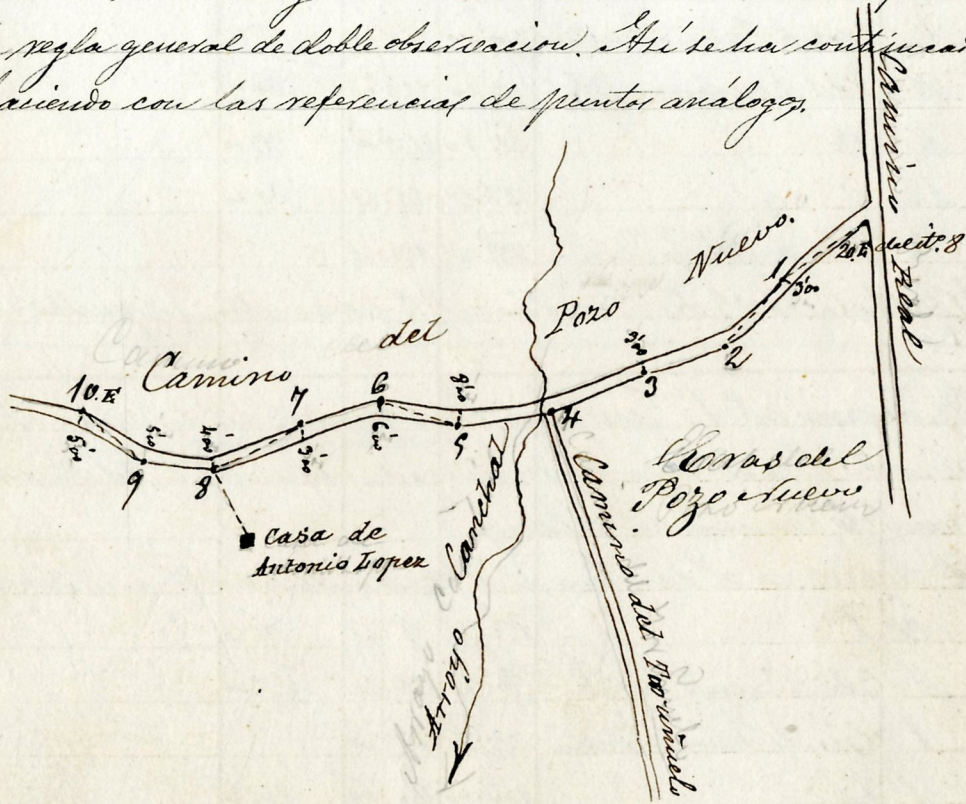 regla general de doble observacion. Así se ha continuad
aciendo con las referencias de puntos análogos.
Camino Real
Camino del Pozo Nuevo.
20.E del itº. 8
1
3'00
2
3'00
3
4
5
6
6'00
7
3'00
4'00
8
5'00
9
10.E
5'00
Eras del
Pozo Nuevo
Casa de
Antonio Lopez
Arroyo Canchal
Camino del Toruñuelo